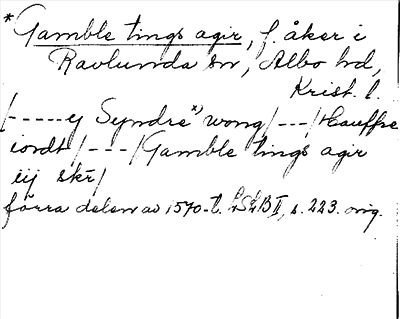 *Gamble tings agir, f. åker i
Ravlunda sn, Albo hd,
Krist. l.
/-----ej Syndre*) wong/---/Hauffre
iordt/---/Gamble tings agir
eij skr/
förra delen av 1570-t. LSkB II, s. 223. orig.